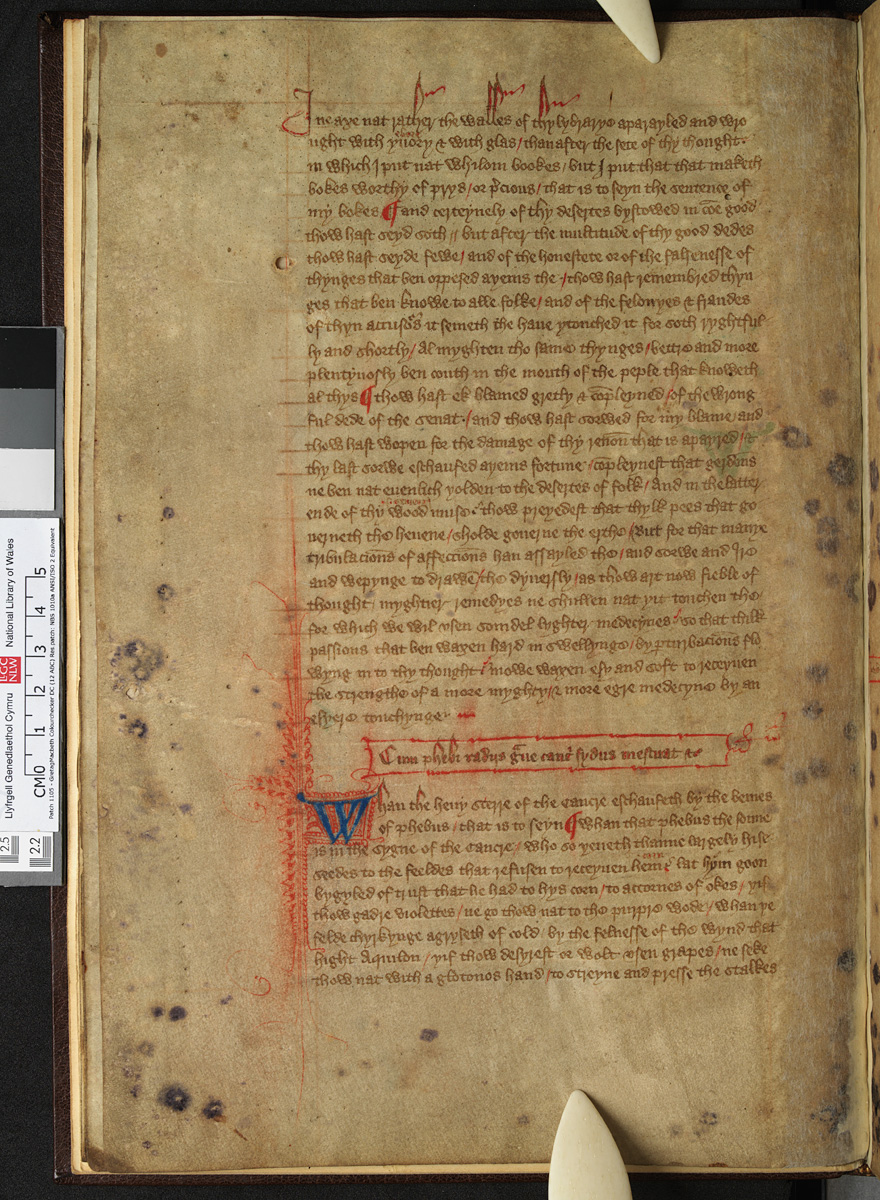 I ne axe nat rather the walles of thy lybrarye aparayled and wro
ught with yuory & with glas / than after the sete of thy thought .
in which I put nat whilom bookes / but I put that that maketh
bokes worthy of prys / or p̄cious / that is to seyn the sentence of
my bokes ¶ and certeynely of thy desertes bystowed in cōe good
thow hast seyd soth // but after the multitude of thy good dedes
thow hast seyde fewe / and of the honestete or of the falsenesse of
thynges that ben opposed ayeins the / thow hast remembred thyn
ges that ben knowe to alle folke / and of the felonyes & fraudes
of thyn accusors it semeth the haue ytouched it for soth ryghtful
ly and shortly / Al myghten tho same thynges / bettre and more
plentyuosly ben couth in the mouth of the peple that knoweth
al thys ¶ thow hast ek blamed gretly & cōpleyned / of the wrong
ful dede of the senat . / and thow hast sorwed for my blame / and
thow hast wopen for the damage of thy renoū that is apayred / &
thy last sorwe eschaufed ayeins fortune / cōpleynest that gerdons
ne ben nat euenlich yolden to the desertes of folk / And in the latter
ende of thy wood muse . thow preyedest that thylk pees that go
uerneth the heuene / sholde gouerne the erthe / But for that manye
tribulacions of affeccions han assayled the / and sorwe and Ire
and wepynge to drawē the dyuersly / as thow art now fieble of
thought / myghtier remedyes ne shullen nat yit touchen the
for which we wil vsen somdel lyghter medecynes / so that thilk
passions that ben waxen hard in swellynge / by p̄turbacions flo
wyng in to thy thought / mowe waxen esy and soft to receyuen
the strengthe of a more myghty & more egre medecyne by an
esyere touchynge
Cum phebi radiis g̃ue cancr̃ sydus inestuat &c
Whan the heuy sterre of the Cancre eschaufeth by the bemes
of phebus / that is to seyn ¶ whan that phebus the sonne
is in the sygne of the Cancre / who so yeueth thanne largely hise
seedes to the feeldes that refusen to receyuen hem / lat hym goon
bygyled of trust that he had to hys corn / to accornes of okes / yif
thow gadre violettes / ne go thow nat to the purpre wode / whan ye
felde chyrkynge agryseth of cold / by the felnesse of the wynd that
hight Aquilon / yif thow desyrest or wolt vsen grapes / ne seke
thow nat with a glotonos hand / to streyne and presse the stalkes
CM 0 1 2 3 4 5
Llyfrgell Genedlaethol Cymru LLGC NLW National Library of Wales
2.5
2.2